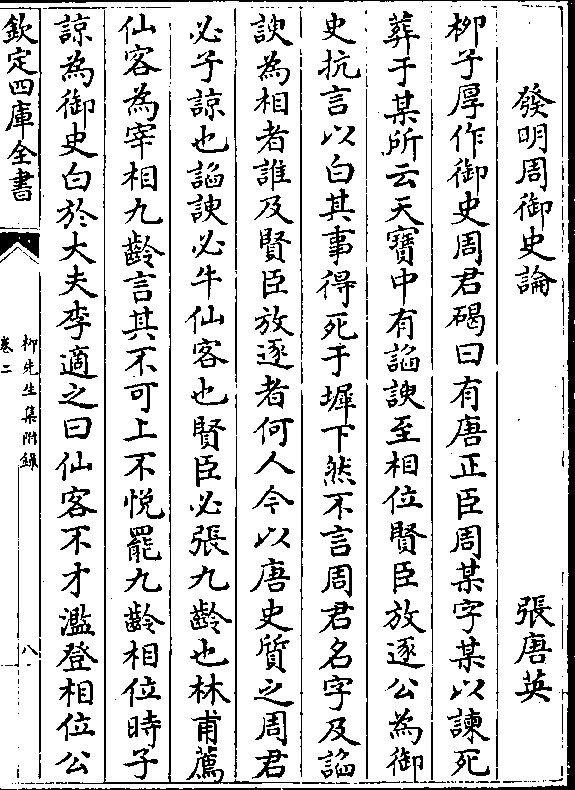 發明周御史論 張唐英
柳子厚作御史周君碣曰有唐正臣周某字某以諫死
葬于某所云天寶中有諂諛至相位賢臣放逐公為御
史抗言以白其事得死于墀下然不言周君名字及諂
諛為相者誰及賢臣放逐者何人今以唐史質之周君
必子諒也諂諛必牛仙客也賢臣必張九齡也林甫薦
仙客為宰相九齡言其不可上不悅罷九齡相位時子
諒為御史白於大夫李適之曰仙客不才濫登相位公
欽定四庫全書
柳先生集附錄
卷二
八